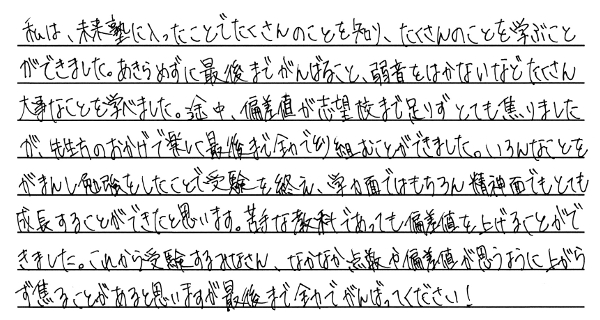 私は、未来塾に入ったことでたくさんのことを知り、たくさんのことを学ぶこと
ができました。あきらめずに最後までがんばること、弱音をはかないなどたくさん
大事なことを学べました。途中、偏差値が志望校まで足りずとても焦りました
が、先生方のおかげで楽しく最後まで全力で取り組むことができました。いろんなことを
がまんし勉強をしたことで受験を終え、学力面ではもちろん精神面でもとても
成長することができたと思います。苦手な教科であっても偏差値を上げることがで
きました。これから受験するみなさん、なかなか点数や偏差値が思うように上がら
ず焦ることがあると思いますが最後まで全力でがんばってください！